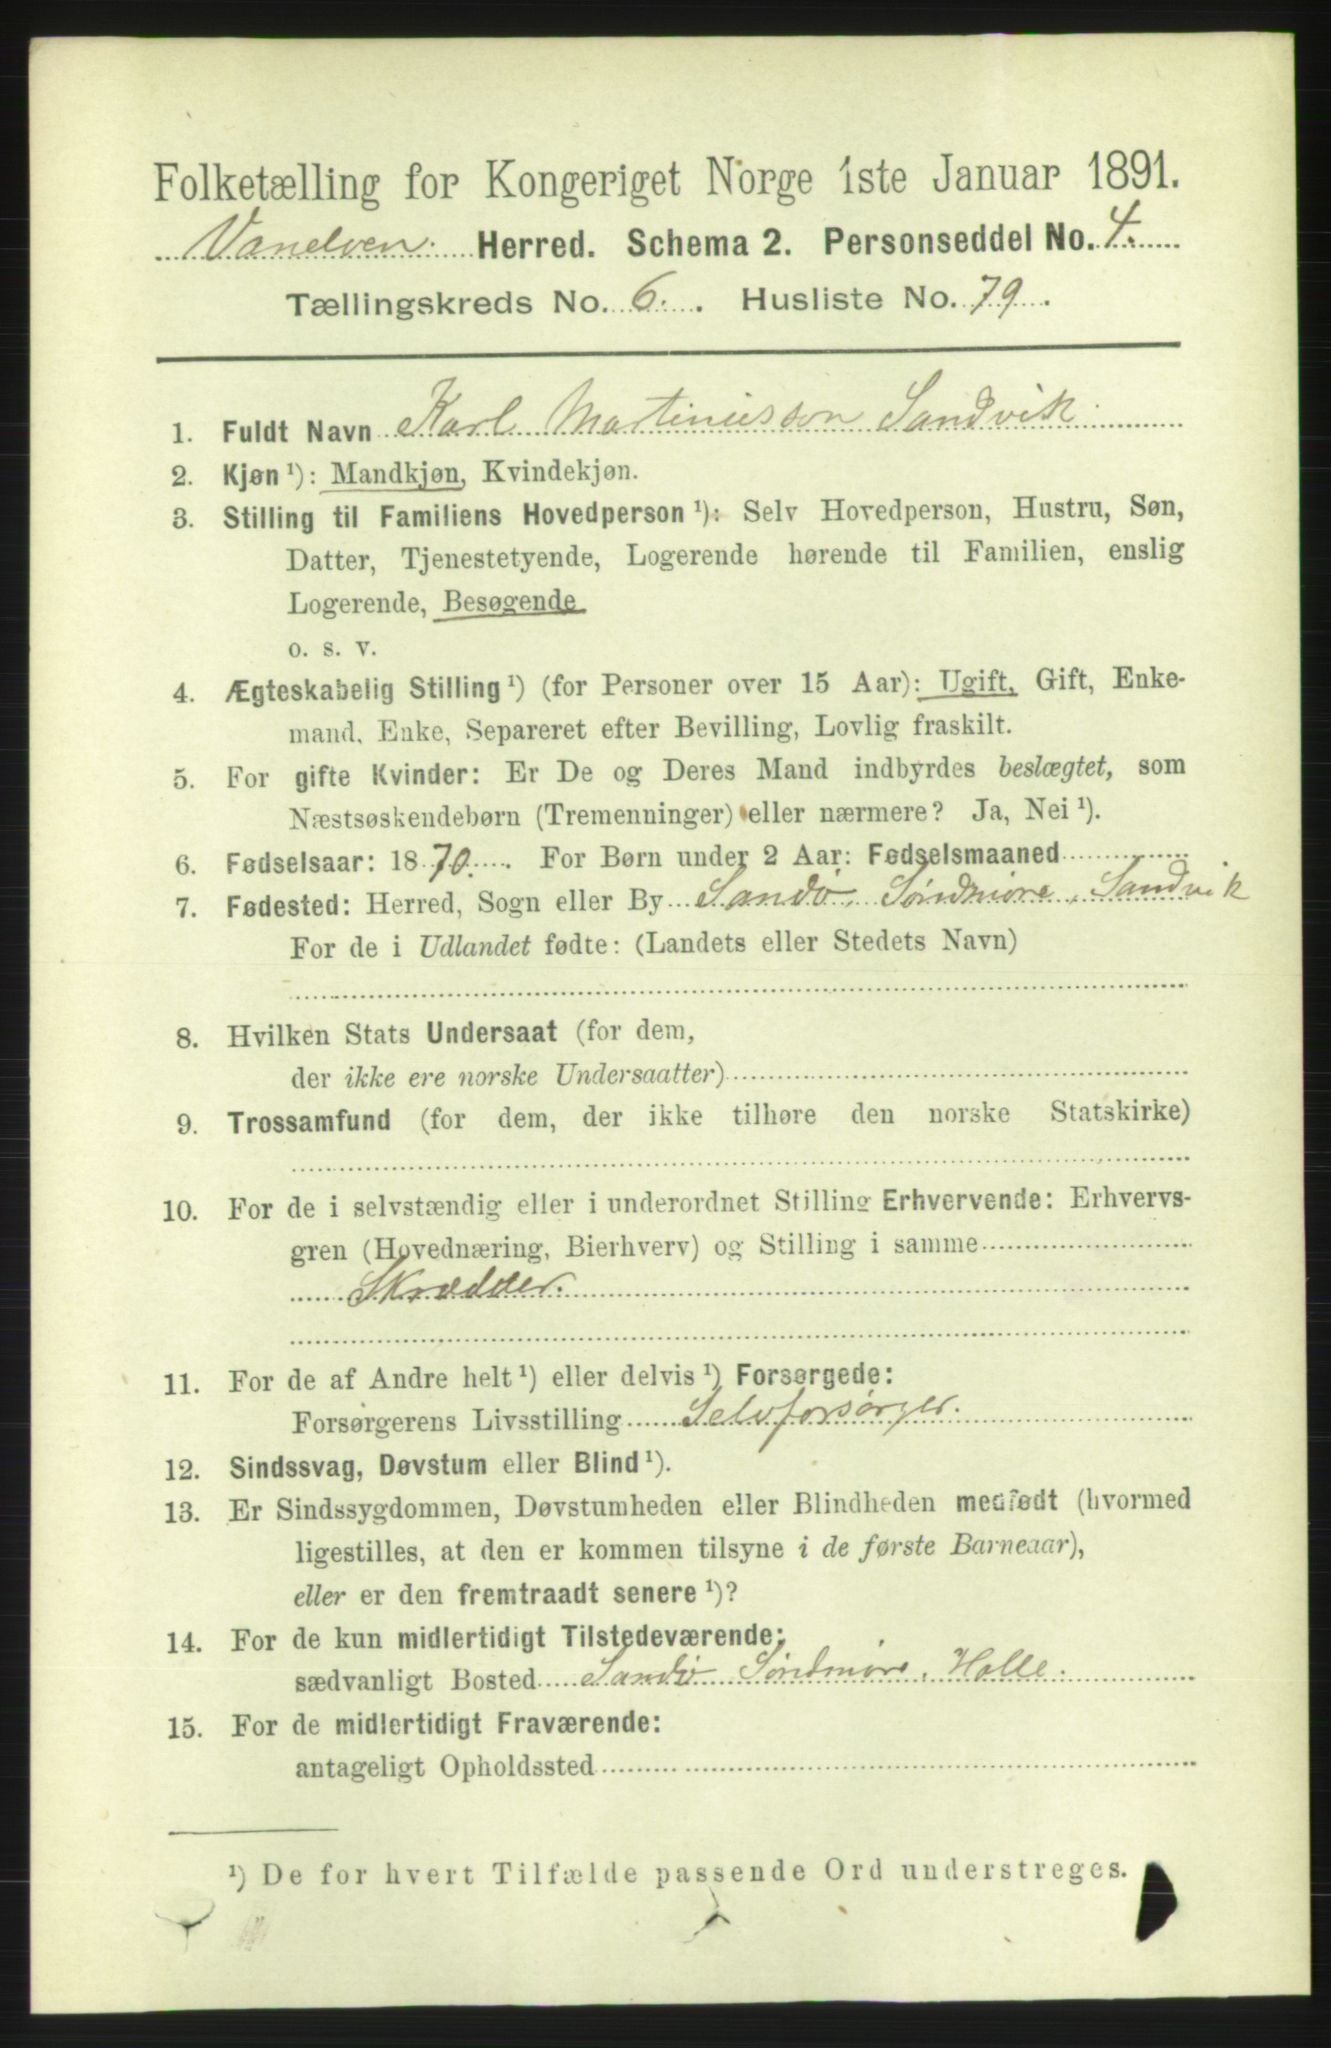 Folketælling for Kongeriget Norge 1ste Januar 1891.
Vanelven. Herred. Schema 2. Personseddel No. 4.
Tællingskreds No. 6. Husliste No. 79.
1. Fuldt Navn Karl Martinusson Sandvik.
2. Kjøn ¹): Mandkjøn, Kvindekjøn.
3. Stilling til Familiens Hovedperson ¹): Selv Hovedperson, Hustru, Søn,
Datter, Tjenestetyende, Logerende hørende til Familien, enslig
Logerende, Besøgende
o. s. v.
4. Ægteskabelig Stilling ¹) (for Personer over 15 Aar): Ugift, Gift, Enke-
mand, Enke, Separeret efter Bevilling, Lovlig fraskilt.
5. For gifte Kvinder: Er De og Deres Mand indbyrdes beslægtet, som
Næstsøskendebørn (Tremenninger) eller nærmere? Ja, Nei ¹).
6. Fødselsaar: 1870. For Børn under 2 Aar: Fødselsmaaned
7. Fødested: Herred, Sogn eller By Sandø, Søndmøre, Sandvik
For de i Udlandet fødte: (Landets eller Stedets Navn)
8. Hvilken Stats Undersaat (for dem,
der ikke ere norske Undersaatter)
9. Trossamfund (for dem, der ikke tilhøre den norske Statskirke)
10. For de i selvstændig eller i underordnet Stilling Erhvervende: Erhvervs-
gren (Hovednæring, Bierhverv) og Stilling i samme
Skrædder.
11. For de af Andre helt ¹) eller delvis ¹) Forsørgede:
Forsørgerens Livsstilling Selvforsørger.
12. Sindssvag, Døvstum eller Blind ¹).
13. Er Sindssygdommen, Døvstumheden eller Blindheden medfødt (hvormed
ligestilles, at den er kommen tilsyne i de første Barneaar),
eller er den fremtraadt senere ¹)?
14. For de kun midlertidigt Tilstedeværende:
sædvanligt Bosted Sandø Søndmøre, Holle.
15. For de midlertidigt Fraværende:
antageligt Opholdssted
¹) De for hvert Tilfælde passende Ord understreges.